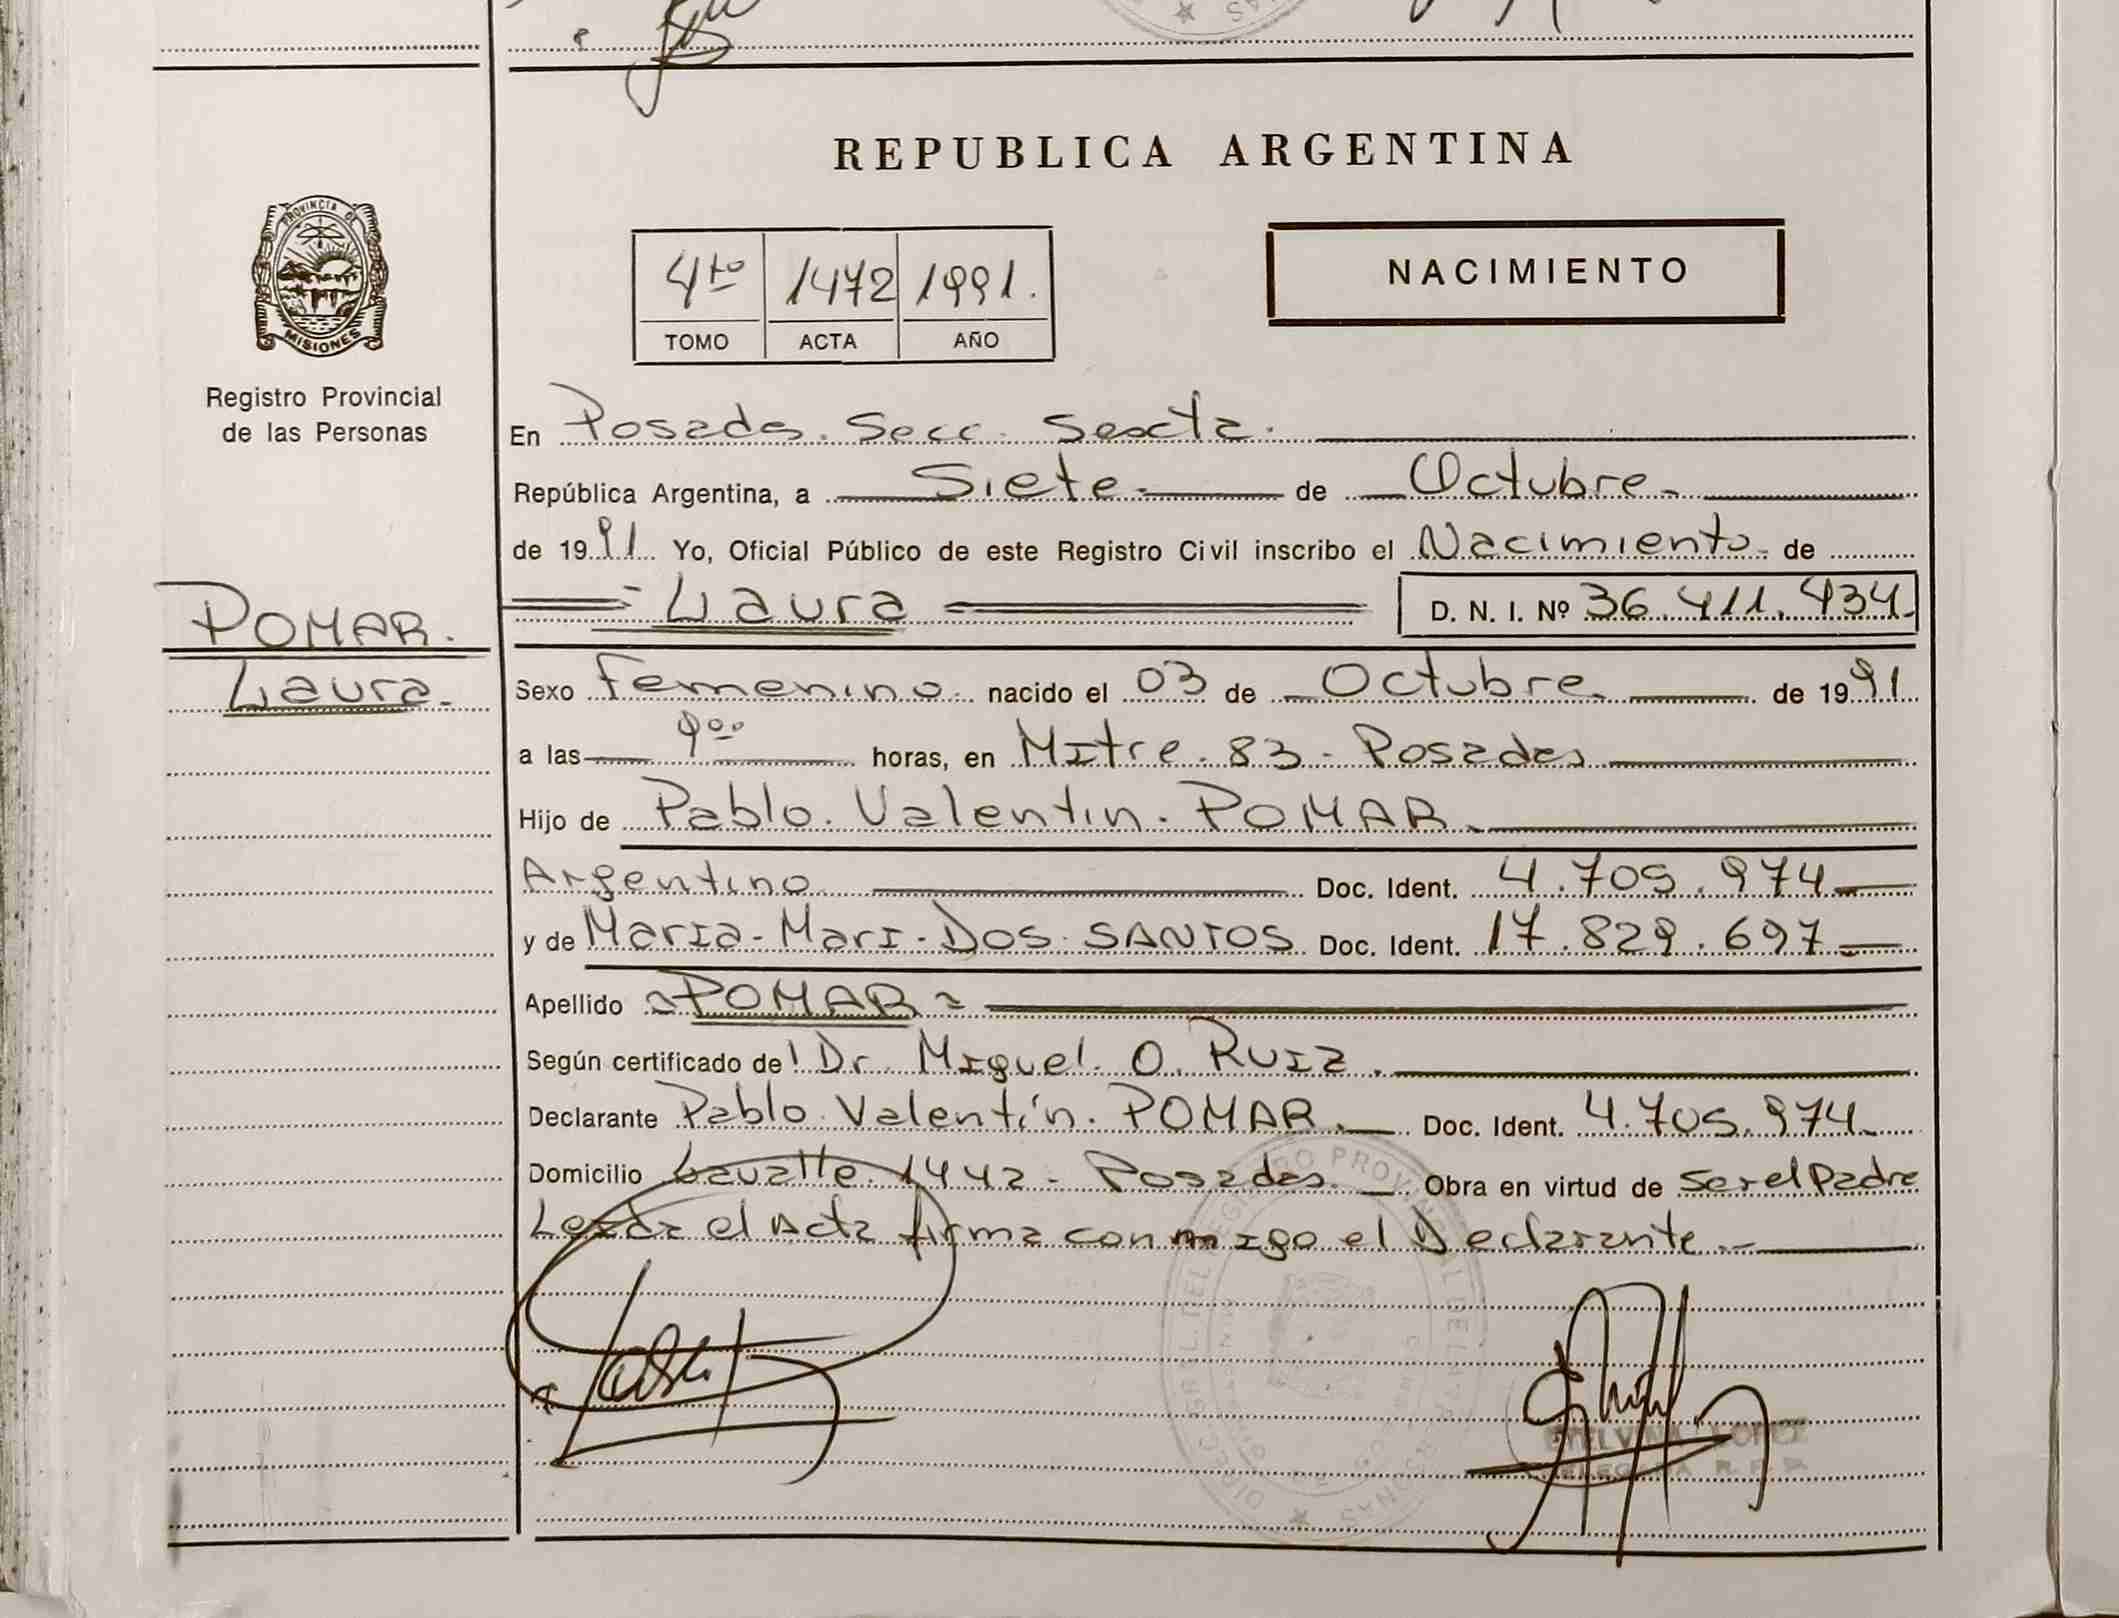 REPUBLICA ARGENTINA
PROVINCIA DE
MISIONES
Registro Provincial
de las Personas
4to 1472 1991.
TOMO ACTA AÑO
NACIMIENTO
En Posadas. Secc. Sexta.
República Argentina, a Siete de Octubre
de 1991 Yo, Oficial Público de este Registro Civil inscribo el Nacimiento de
Laura D. N. I. Nº 36.411.434.
POMAR.
Laura.
Sexo Femenino nacido el 03 de Octubre de 1991
a las 9oo horas, en Mitre 83 - Posadas
Hijo de Pablo Valentin POMAR
Argentino Doc. Ident. 4.705.974
y de Maria Mari Dos SANTOS Doc. Ident. 17.829.697
Apellido POMAR
Según certificado de Dr. Miguel O. RUIZ.
Declarante Pablo Valentín POMAR Doc. Ident. 4.705.974
Domicilio Lavalle 1442 - Posadas Obra en virtud de ser el Padre
Leida el Acta firma conmigo el Declarante
LOPEZ